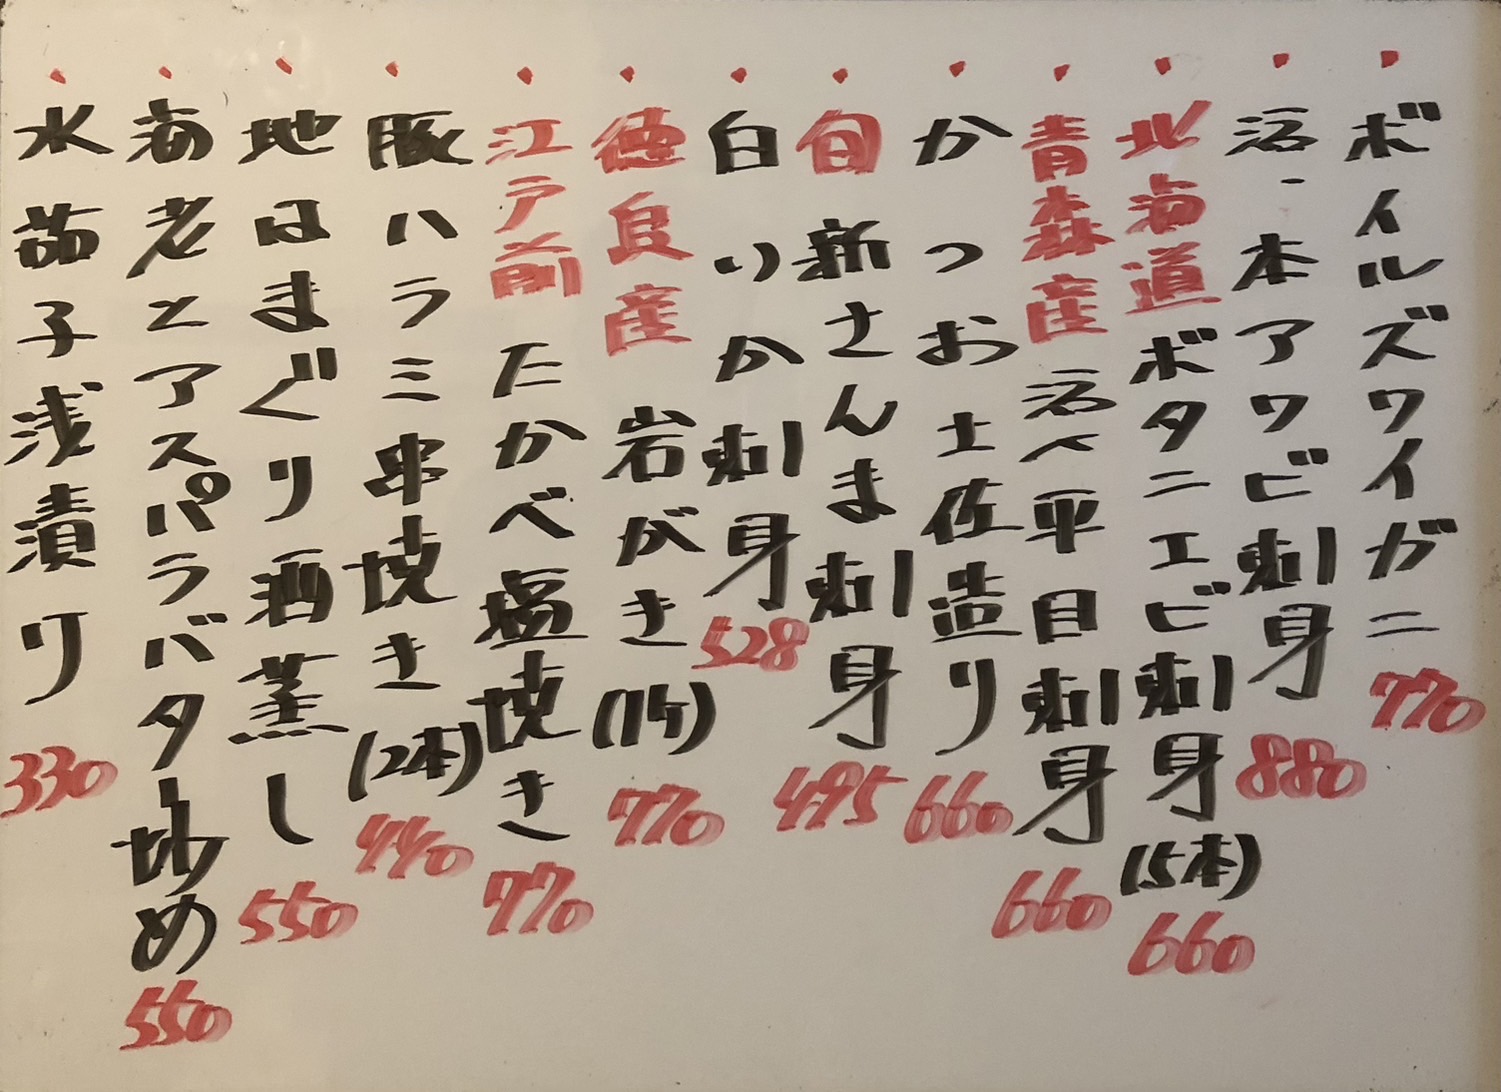 ボイルズワイガニ 770
活・本アワビ刺身 880
北海道 ボタニエビ刺身(5本) 660
青森産 活〆平目刺身 660
かつお土佐造り 660
旬 新さんま刺身 495
白いか刺身 528
徳良産 岩がき(1ケ) 770
江戸前 たかべ塩焼き 770
豚ハラミ串焼き(2本) 440
地はまぐり酒蒸し 550
海老とアスパラバター炒め 550
水茄子浅漬り 330